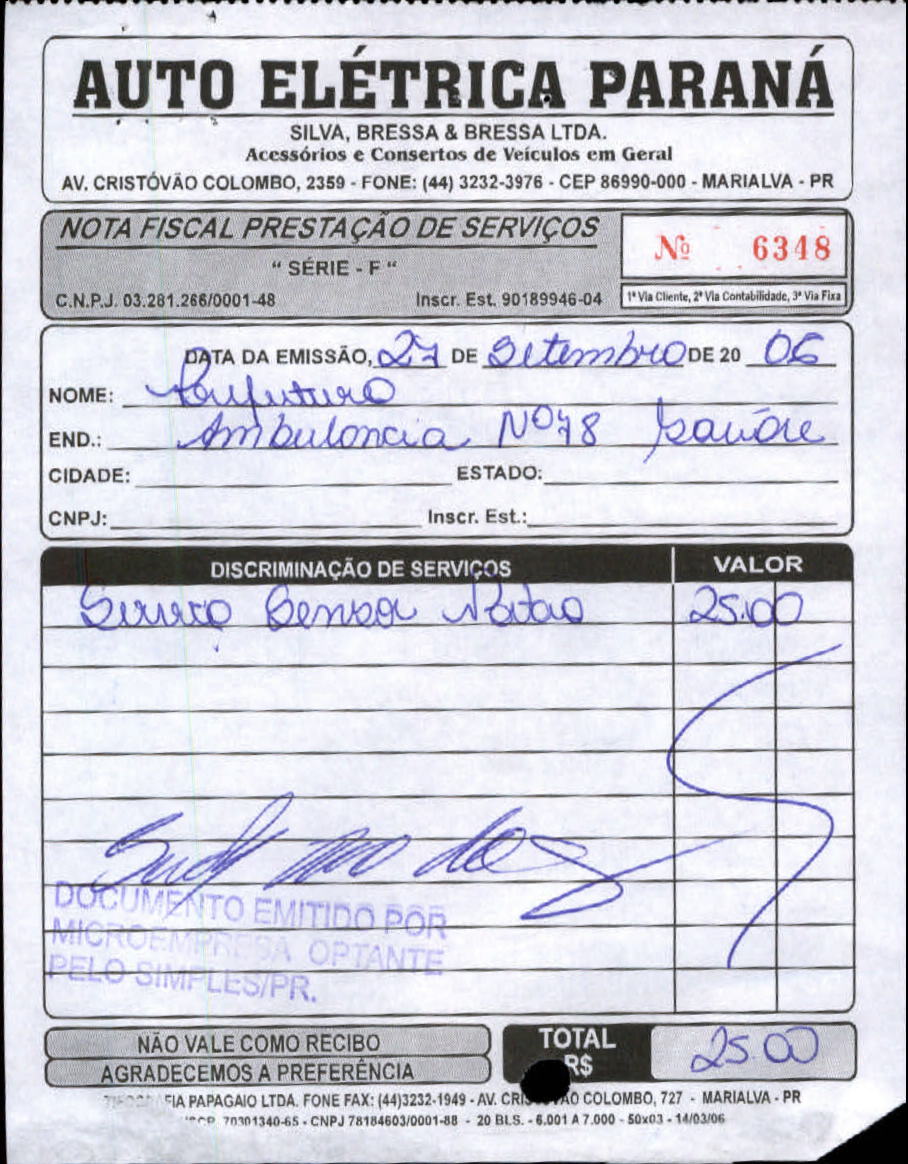 AUTO ELÉTRICA PARANÁ
SILVA, BRESSA & BRESSA LTDA.
Acessórios e Consertos de Veículos em Geral
AV. CRISTÓVÃO COLOMBO, 2359 - FONE: (44) 3232-3976 - CEP 86990-000 - MARIALVA - PR
NOTA FISCAL PRESTAÇÃO DE SERVIÇOS
Nº 6348
" SÉRIE - F "
C.N.P.J. 03.281.266/0001-48 Inscr. Est. 90189946-04
1ª Via Cliente, 2ª Via Contabilidade, 3ª Via Fixa
DATA DA EMISSÃO, 27 DE Setembro DE 20 06
NOME: Prefeitura
END.: Ambulancia Nº 78
CIDADE: ESTADO:
CNPJ: Inscr. Est.:
DISCRIMINAÇÃO DE SERVIÇOS VALOR
Serviço Sensor 25.00
DOCUMENTO EMITIDO POR
MICROEMPRESA OPTANTE
PELO SIMPLES/PR.
NÃO VALE COMO RECIBO
AGRADECEMOS A PREFERÊNCIA
TOTAL
R$ 25.00
PAPAGAIO LTDA. FONE FAX: (44)3232-1949 - AV. COLOMBO, 727 - MARIALVA - PR
70301340-65 - CNPJ 78184603/0001-88 - 20 BLS. - 6.001 A 7.000 - 50x03 - 14/03/06